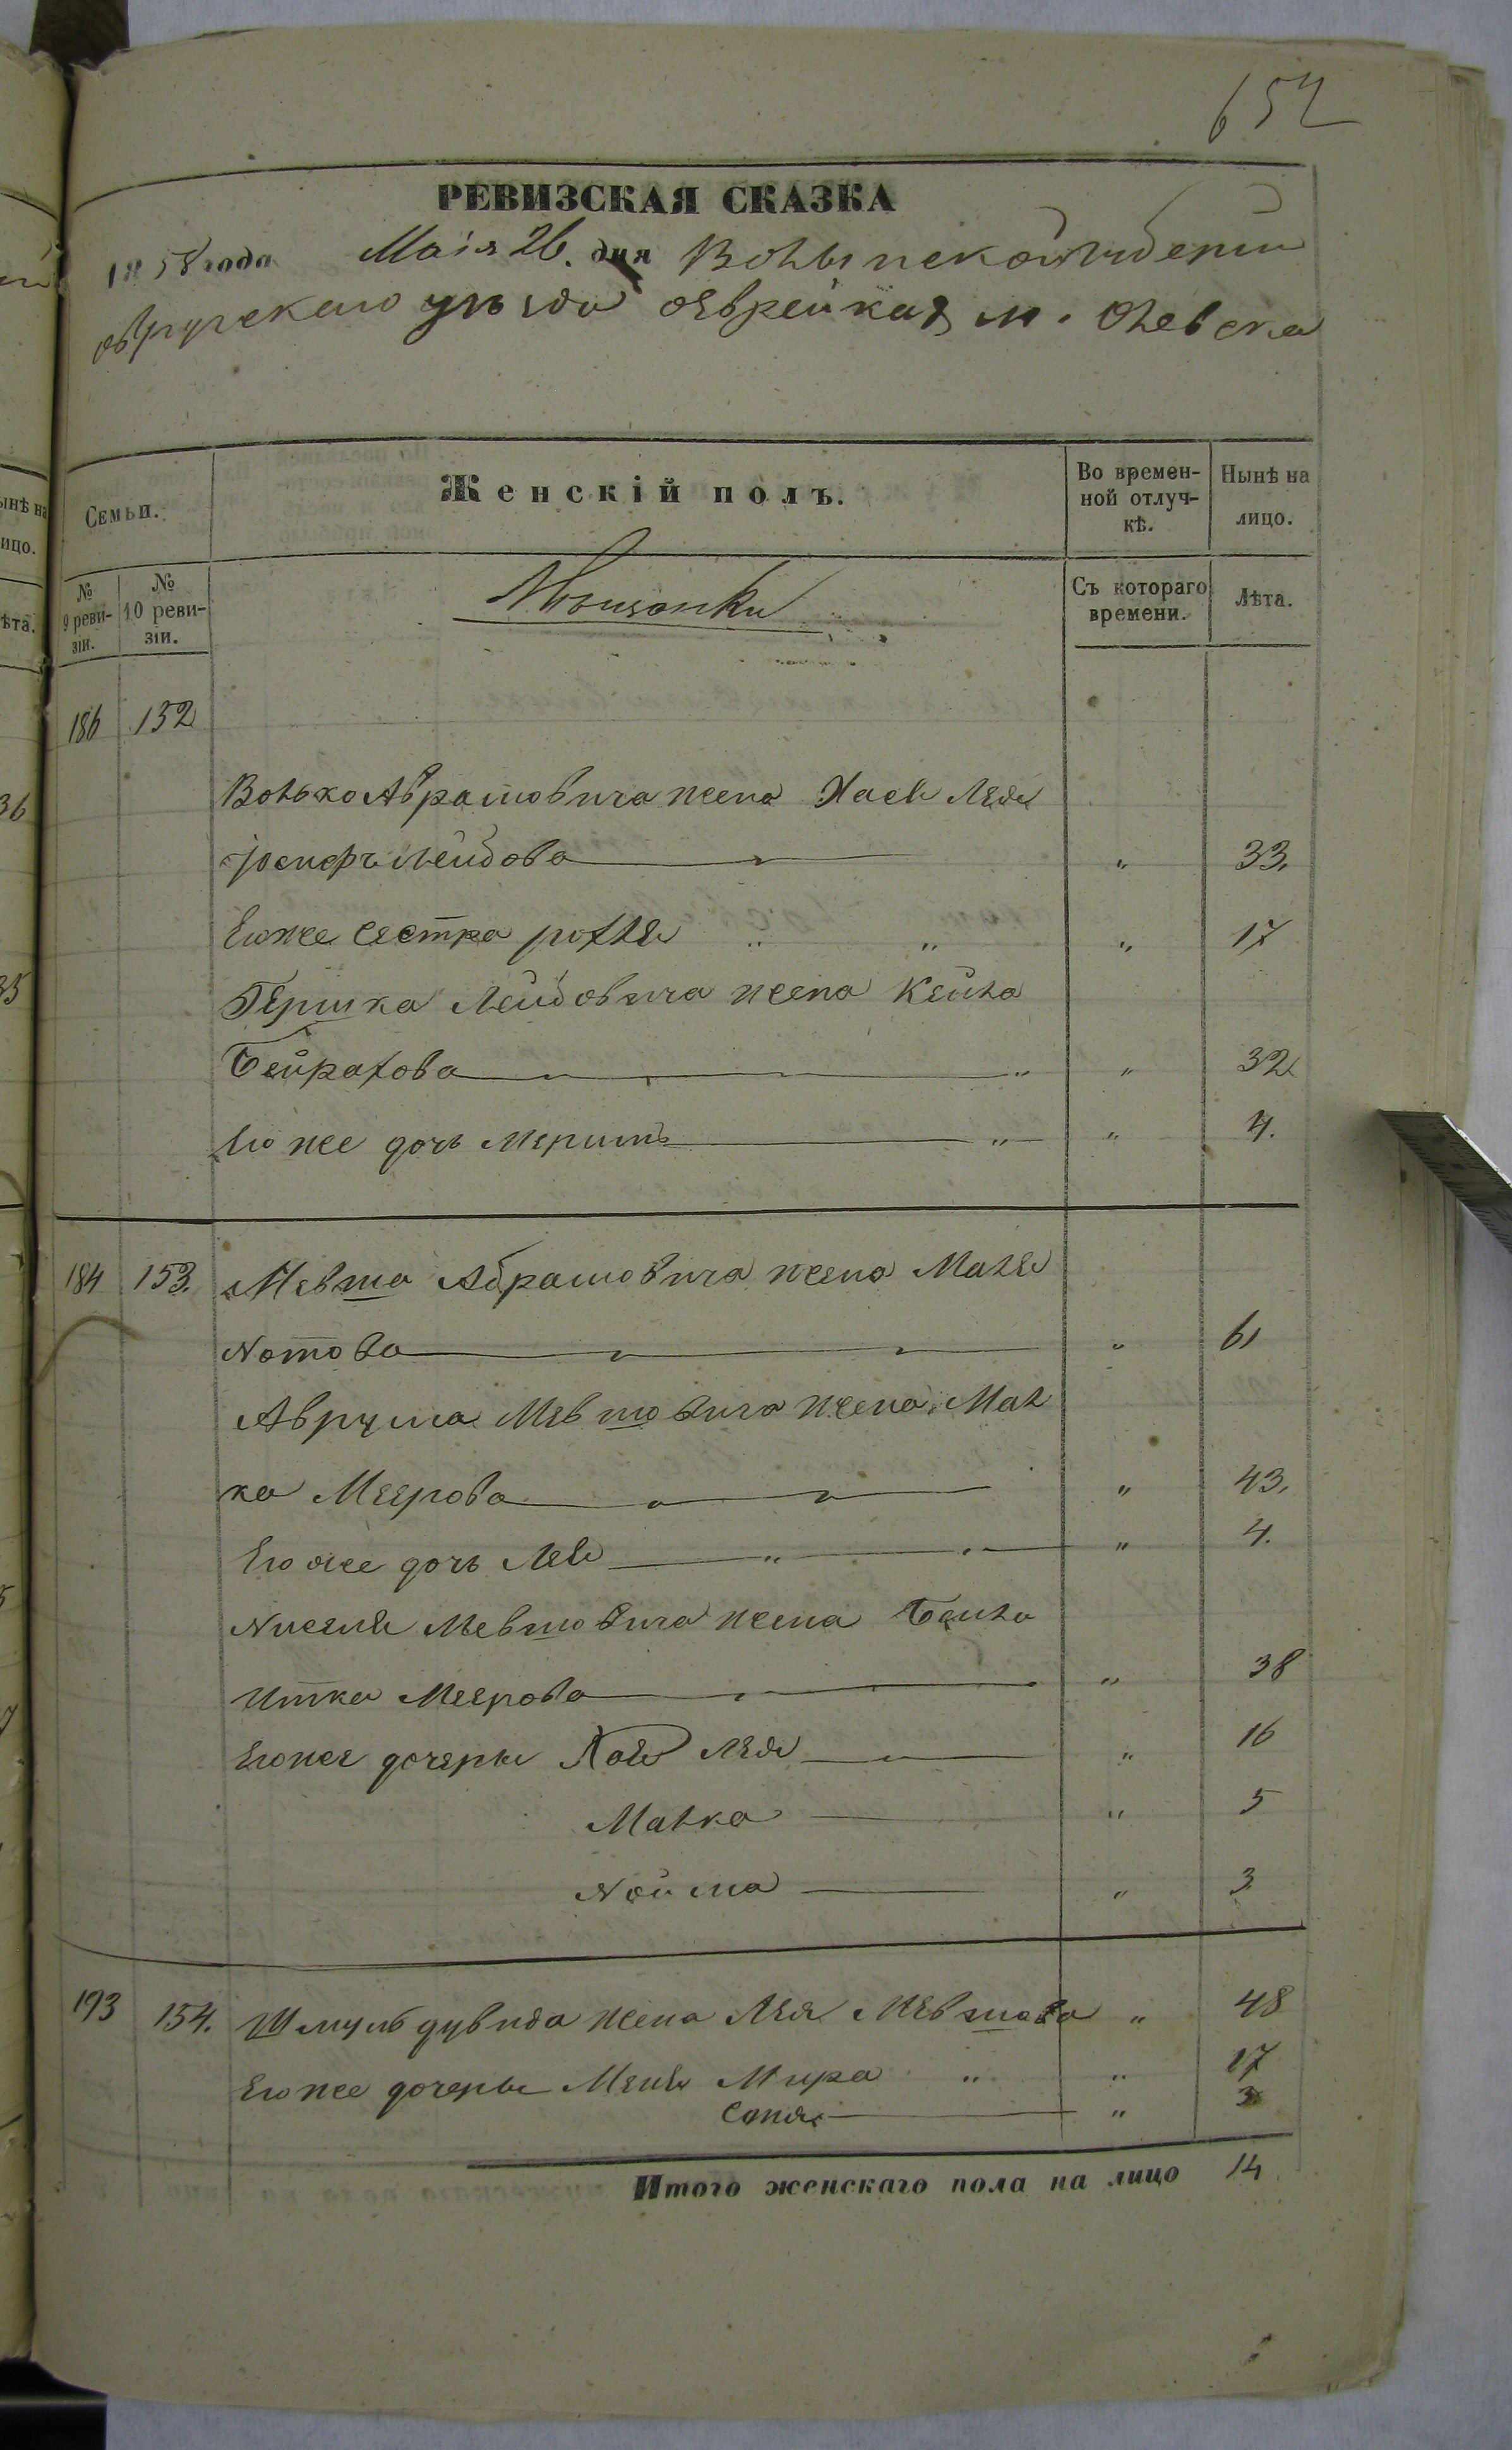 652
РЕВИЗСКАЯ СКАЗКА
1858 года Маія 26. дня Волынской губерніи
овручскаго уѣзда еврейская м. Олевска
Семьи.
Женскій полъ.
Во времен-
ной отлуч-
кѣ.
Нынѣ на
лицо.
№
9 реви-
зіи.
№
10 реви-
зіи.
Мѣщанки
Съ котораго
времени.
Лѣта.
186 152
Волько Аврамовича жена Хася Лея
Іосифъ Лейбова " 33.
Его же сестра рохля " " " 17
Гершка Лейбовича жена Кейла
Бейрахова " " 32
Его же дочь Меримъ " " 4.
184 153. Мевша Абрамовича жена Маля
Нотова " 61
Аврума Мевшовича жена Мал
ка Меерова " 43.
Его же дочь Лея " " 4.
Ниселя Мевшовича жена Бейла
Итка Меерова " 38
Его же дочери Хая Лея " 16
Малка " 5
Нойма " 3
193 154. Шмуль дувида жена Лея Мевшова " 48
Его же дочери Меня Мира " " 17
Соня " 3
Итого женскаго пола на лицо 14